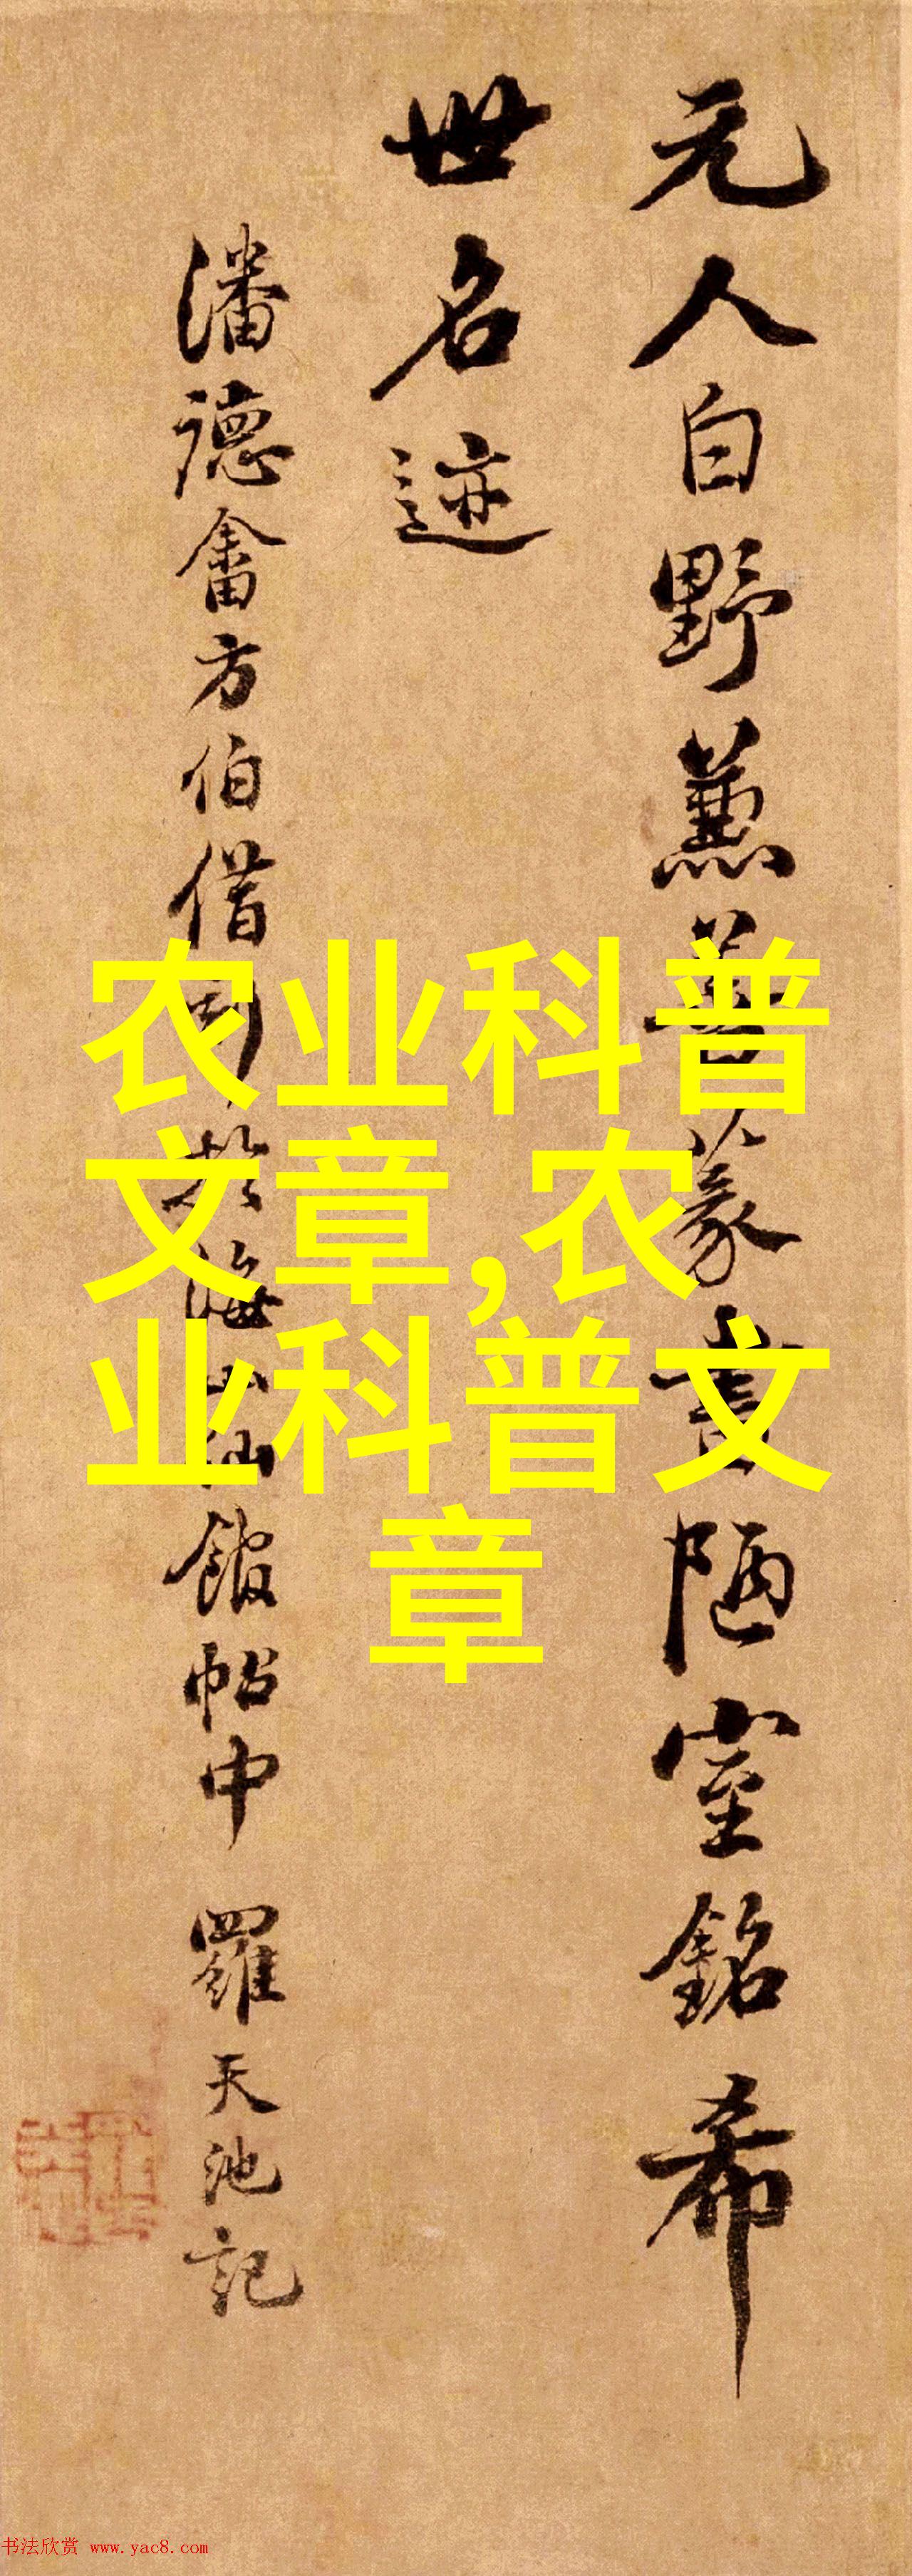 元人白野兼善篆書陋室銘希
世名迹
潘德畬方伯借刊於海山仙館帖中 羅天池記
农业科普
文章,农
业科普文
章
书法欣赏 www.yac8.com